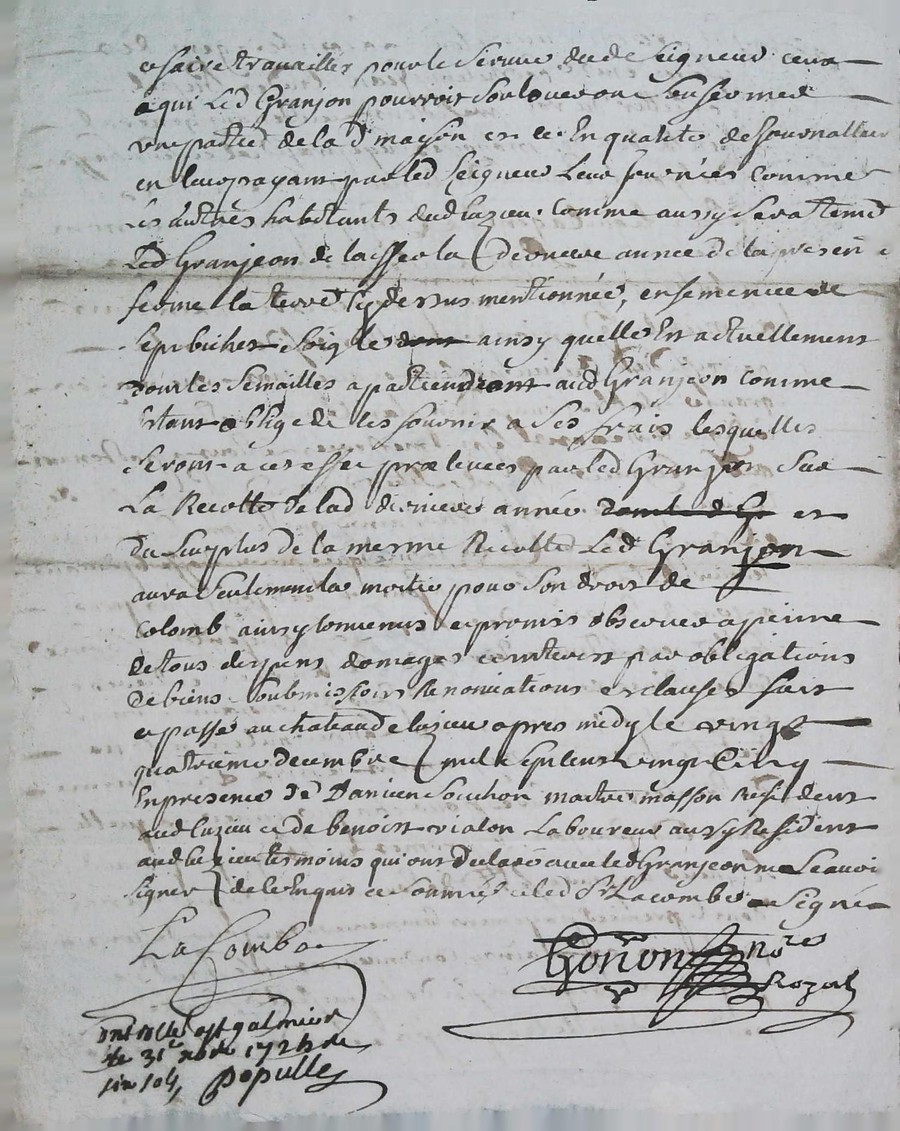 et faire travailler pour le service dud seigneur ceux
a qui Led Granjon pourroit soulouer ou sousfermer
une partie de lad maison et ce En qualité de Journallier
en leur payant par led Seigneur Leur Journées comme
Les autres habitants dud luzieu. comme aussy sera tenu
Led Granjeon de laisser la derniere année de la presente
ferme la terre cy dessus mentionnée, ensemencée de
sept bichets soigle ainsy quelle Est actuellement
dont les semailles apartiendront aud Granjeon comme
Estant obligé de les fournir a ses frais lesquelles
seront a cet effet prelevées par led Granjon sur
La Recolte de lad derniere année et
du surplus de la meme Recolte Led Granjon
aura seulement la moitié pour son droit de
Colomb ainsy convenus et promis observer a peinne
de tous despens domages et interest par obligations
de biens soubmissions Renonciations et clauses fait
et passé au chateau de luzieu apres midy le vingt
quatrieme decembre mil sept cent vingt Cinq
En presence de Damien Souchon maitre masson Resident
aud luzieu et de benoist vialon Laboureur aussy Resident
aud luzieu temoins qui ont declaré avec led Granjeon ne scavoir
signer de ce Enquis et sommés et led Sr Lacombe a signé
La Combe
Gonon Nore
Royal
Controllé a st galmier
le 31e xbre 172
Populle